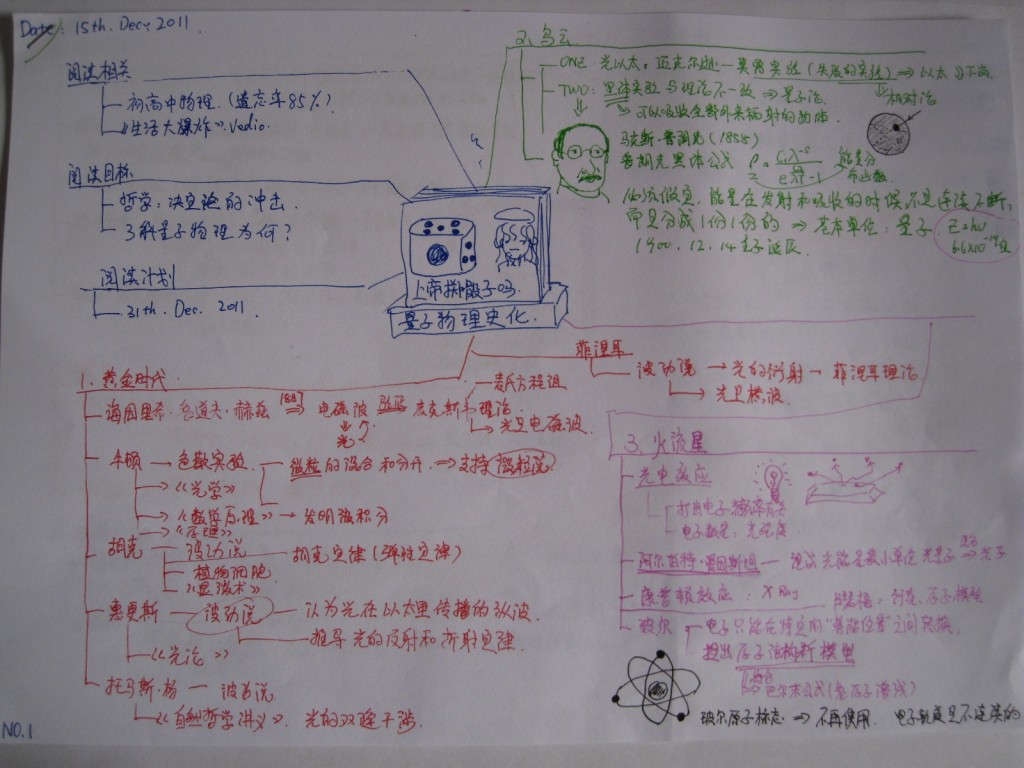 Date: 15th. Dec, 2011.
阅读相关
初高中物理. (遗忘率85%)
《生活大爆炸》. Vedio.
阅读目标
哲学: 决定论的冲击.
了解量子物理为何?
阅读计划
31th. Dec. 2011.
上帝掷骰子吗.
量子物理史化.
2. 乌云
ONE: 光以太, 迈克尔逊—莫雷实验 (失败的实验) ⇒ 以太
相对论
TWO: 黑体实验与理论不一致 ⇒ 量子论.
可以吸收全部外来辐射的物体.
马克斯·普朗克 (1858)
普朗克黑体公式
能量分布函数
必须假定, 能量在发射和吸收的时候, 不是连续不断,
而是分成1份1份的 ⇒ 基本单位: 量子 E=hν
1900. 12. 14 量子诞辰.
菲涅耳
波动说 → 光的衍射 → 菲涅耳理论
光是横波.
1. 黄金时代.
麦氏方程组
海因里希·鲁道夫·赫兹 ⇒ 电磁波 验证 麦克斯韦理论
光
光是电磁波.
牛顿 → 色散实验. 微粒的混合和分开. ⇒ 支持微粒说.
《光学》
《数学原理》 → 发明微积分
《原理》
胡克 波动说 胡克定律 (弹性定律)
植物细胞
《显微术》
惠更斯 — 波动说 — 认为光在以太里传播的纵波.
推导光的反射和折射定律
《光论》
托马斯·杨 — 波动说
《自然哲学讲义》. 光的双缝干涉.
3. 火流星
光电效应
打出电子:频率有关
电子数量: 光强度
阿尔伯特·爱因斯坦 光量子 ⇒ 光子
康普顿效应. X Ray
卢瑟福: 行星. 原子模型
玻尔 电子只能在特定的"势能位置"之间转换.
提出原子结构新模型
巴尔末公式 (氢原子谱线)
玻尔原子标志 ⇒ 不再使用. 电子轨道是不连续的
NO.1